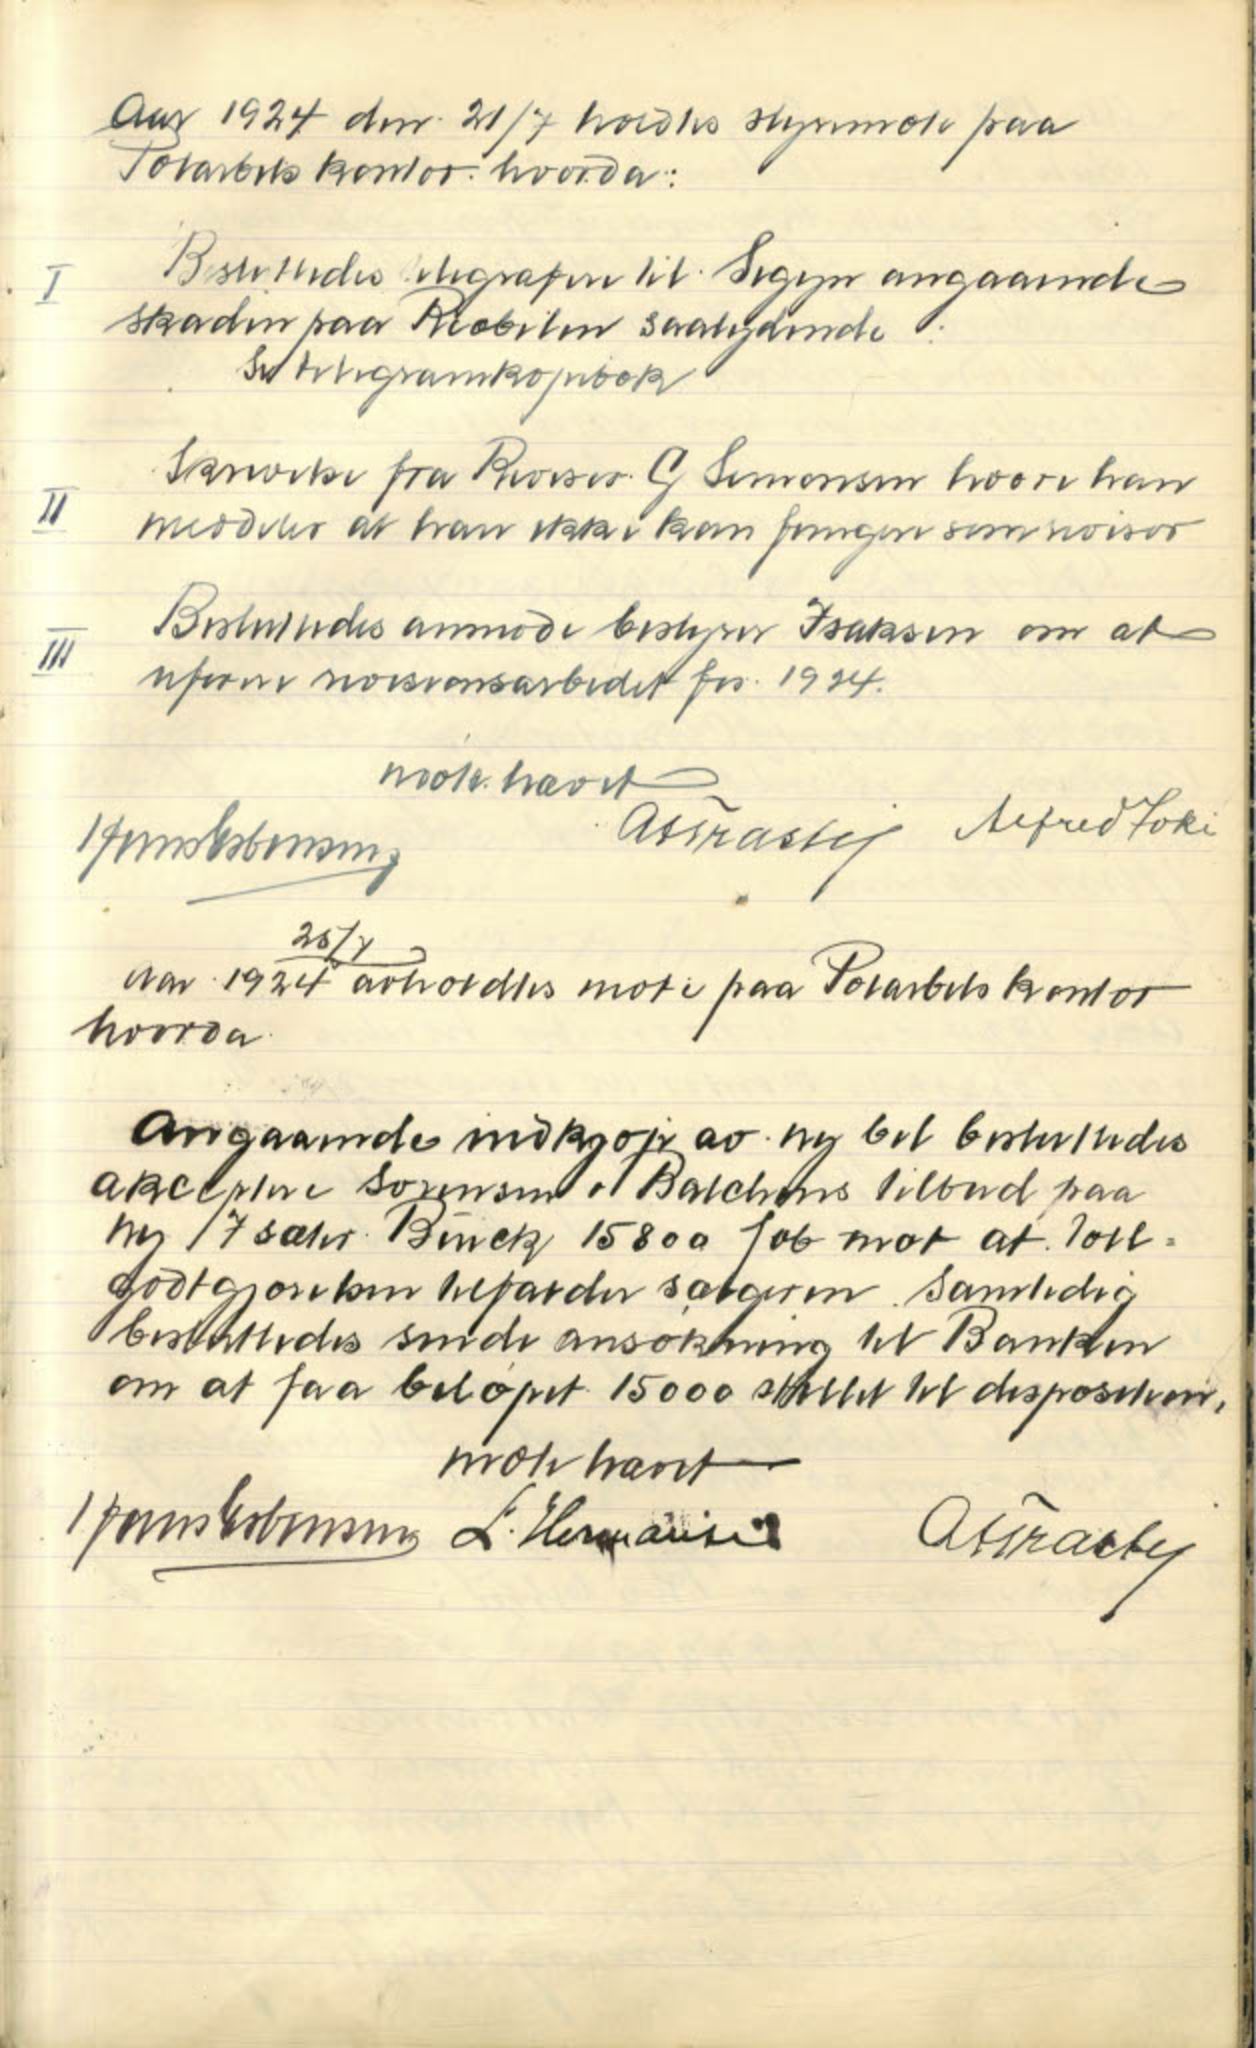 Aar 1924 den 21/7 holdtes styremøte paa
Polarbils kontor hvorda:
I Besluttedes telegrafere til angaaende
skaden paa saalydende :
Se telegramkopibok
II Skrivelse fra Revisor G Simonsen hvori han
meddeler at han ikke kan fungere som revisor
III Besluttedes anmode bestyrer Isaksen om at
utføre revisionsarbeidet for 1924.
møte hævet
Jens Esbensen Alfred Foki
25/7
Aar 1924 avholdtes møte paa Polarbils kontor
hvorda
Angaaende indkjøp av ny bil besluttedes
akceptere Sørensen & Balchens tilbud paa
ny 7 sæter Buick 15800 fob mot at toll-
godtgjørelsen tilfalder sælgeren. Samtidig
besluttedes sende ansøkning til Banken
om at faa beløpet 15000 stillet til disposition.
møte hævet
Jens Esbensen L. Hermansen